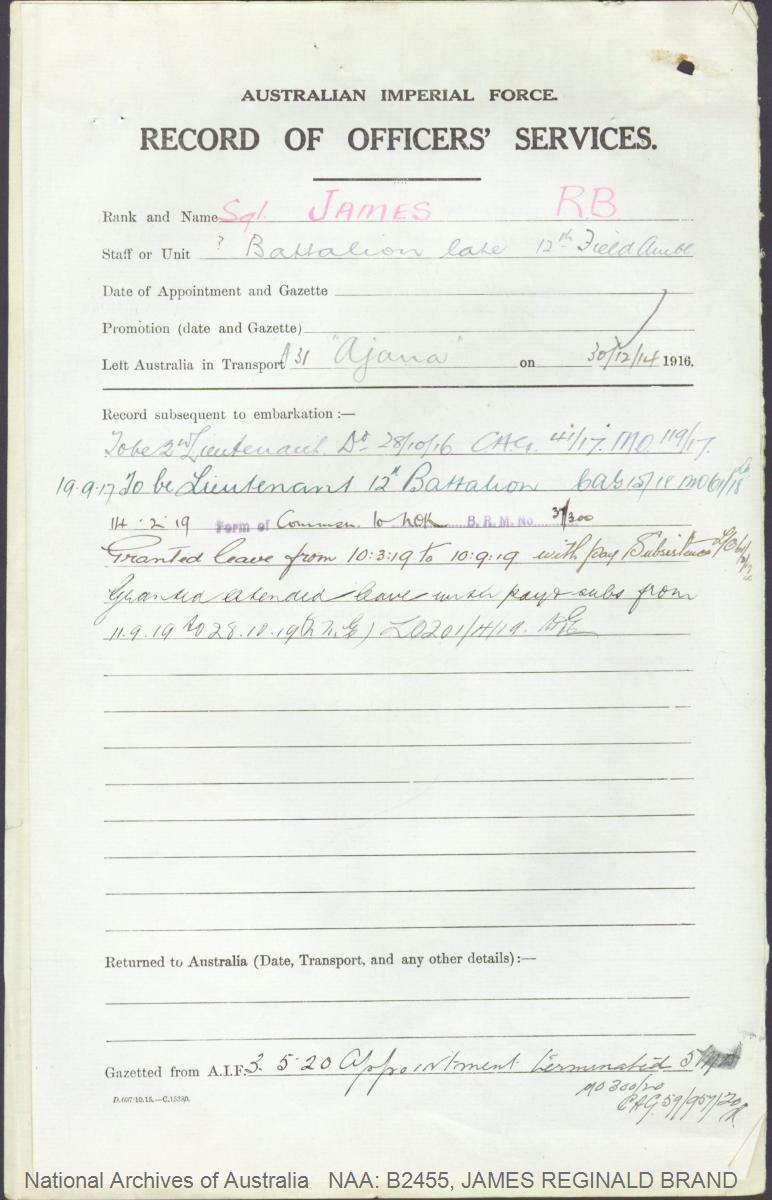 AUSTRALIAN IMPERIAL FORCE.
RECORD OF OFFICERS' SERVICES.
Rank and Name Sgt. JAMES R.B.
Staff or Unit ? Battalion late 12th Field Ambl
Date of Appointment and Gazette
Promotion (date and Gazette)
Left Australia in Transport A 31 "Ajana" on 30/12/14 1916.
Record subsequent to embarkation :—
To be 2nd Lieutenant. Dd 28/10/16 CAG. 41/17. MO. 119/17.
19.9.17 To be Lieutenant 12th Battalion CAG 15/18 MO 61/18
14.2.19 Form of Commen. to NOK B.R.M. No. 37/300
Granted leave from 10:3:19 to 10:9:19 with pay Subsistence
Granted extended leave with pay & subs from
11.9.19 to 28.10.19 LO201/14/19.
Returned to Australia (Date, Transport, and any other details) :—
Gazetted from A.I.F. 3.5.20 Appointment terminated
MO 300/20
CAG. 59/957/20
D.697/10.15.—C.15380.
National Archives of Australia NAA: B2455, JAMES REGINALD BRAND